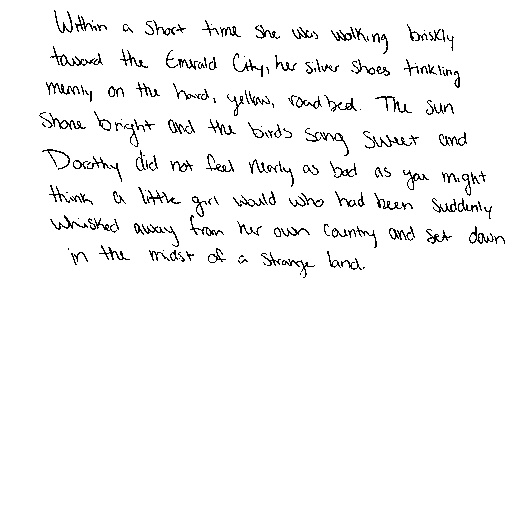 Within a short time she was walking briskly
toward the Emerald City, her silver shoes tinkling
merrily on the hard, yellow, roadbed. The sun
shone bright and the birds sang sweet and
Dorothy did not feel nearly as bad as you might
think a little girl would who had been suddenly
whisked away from her own country and set down
in the midst of a strange land.